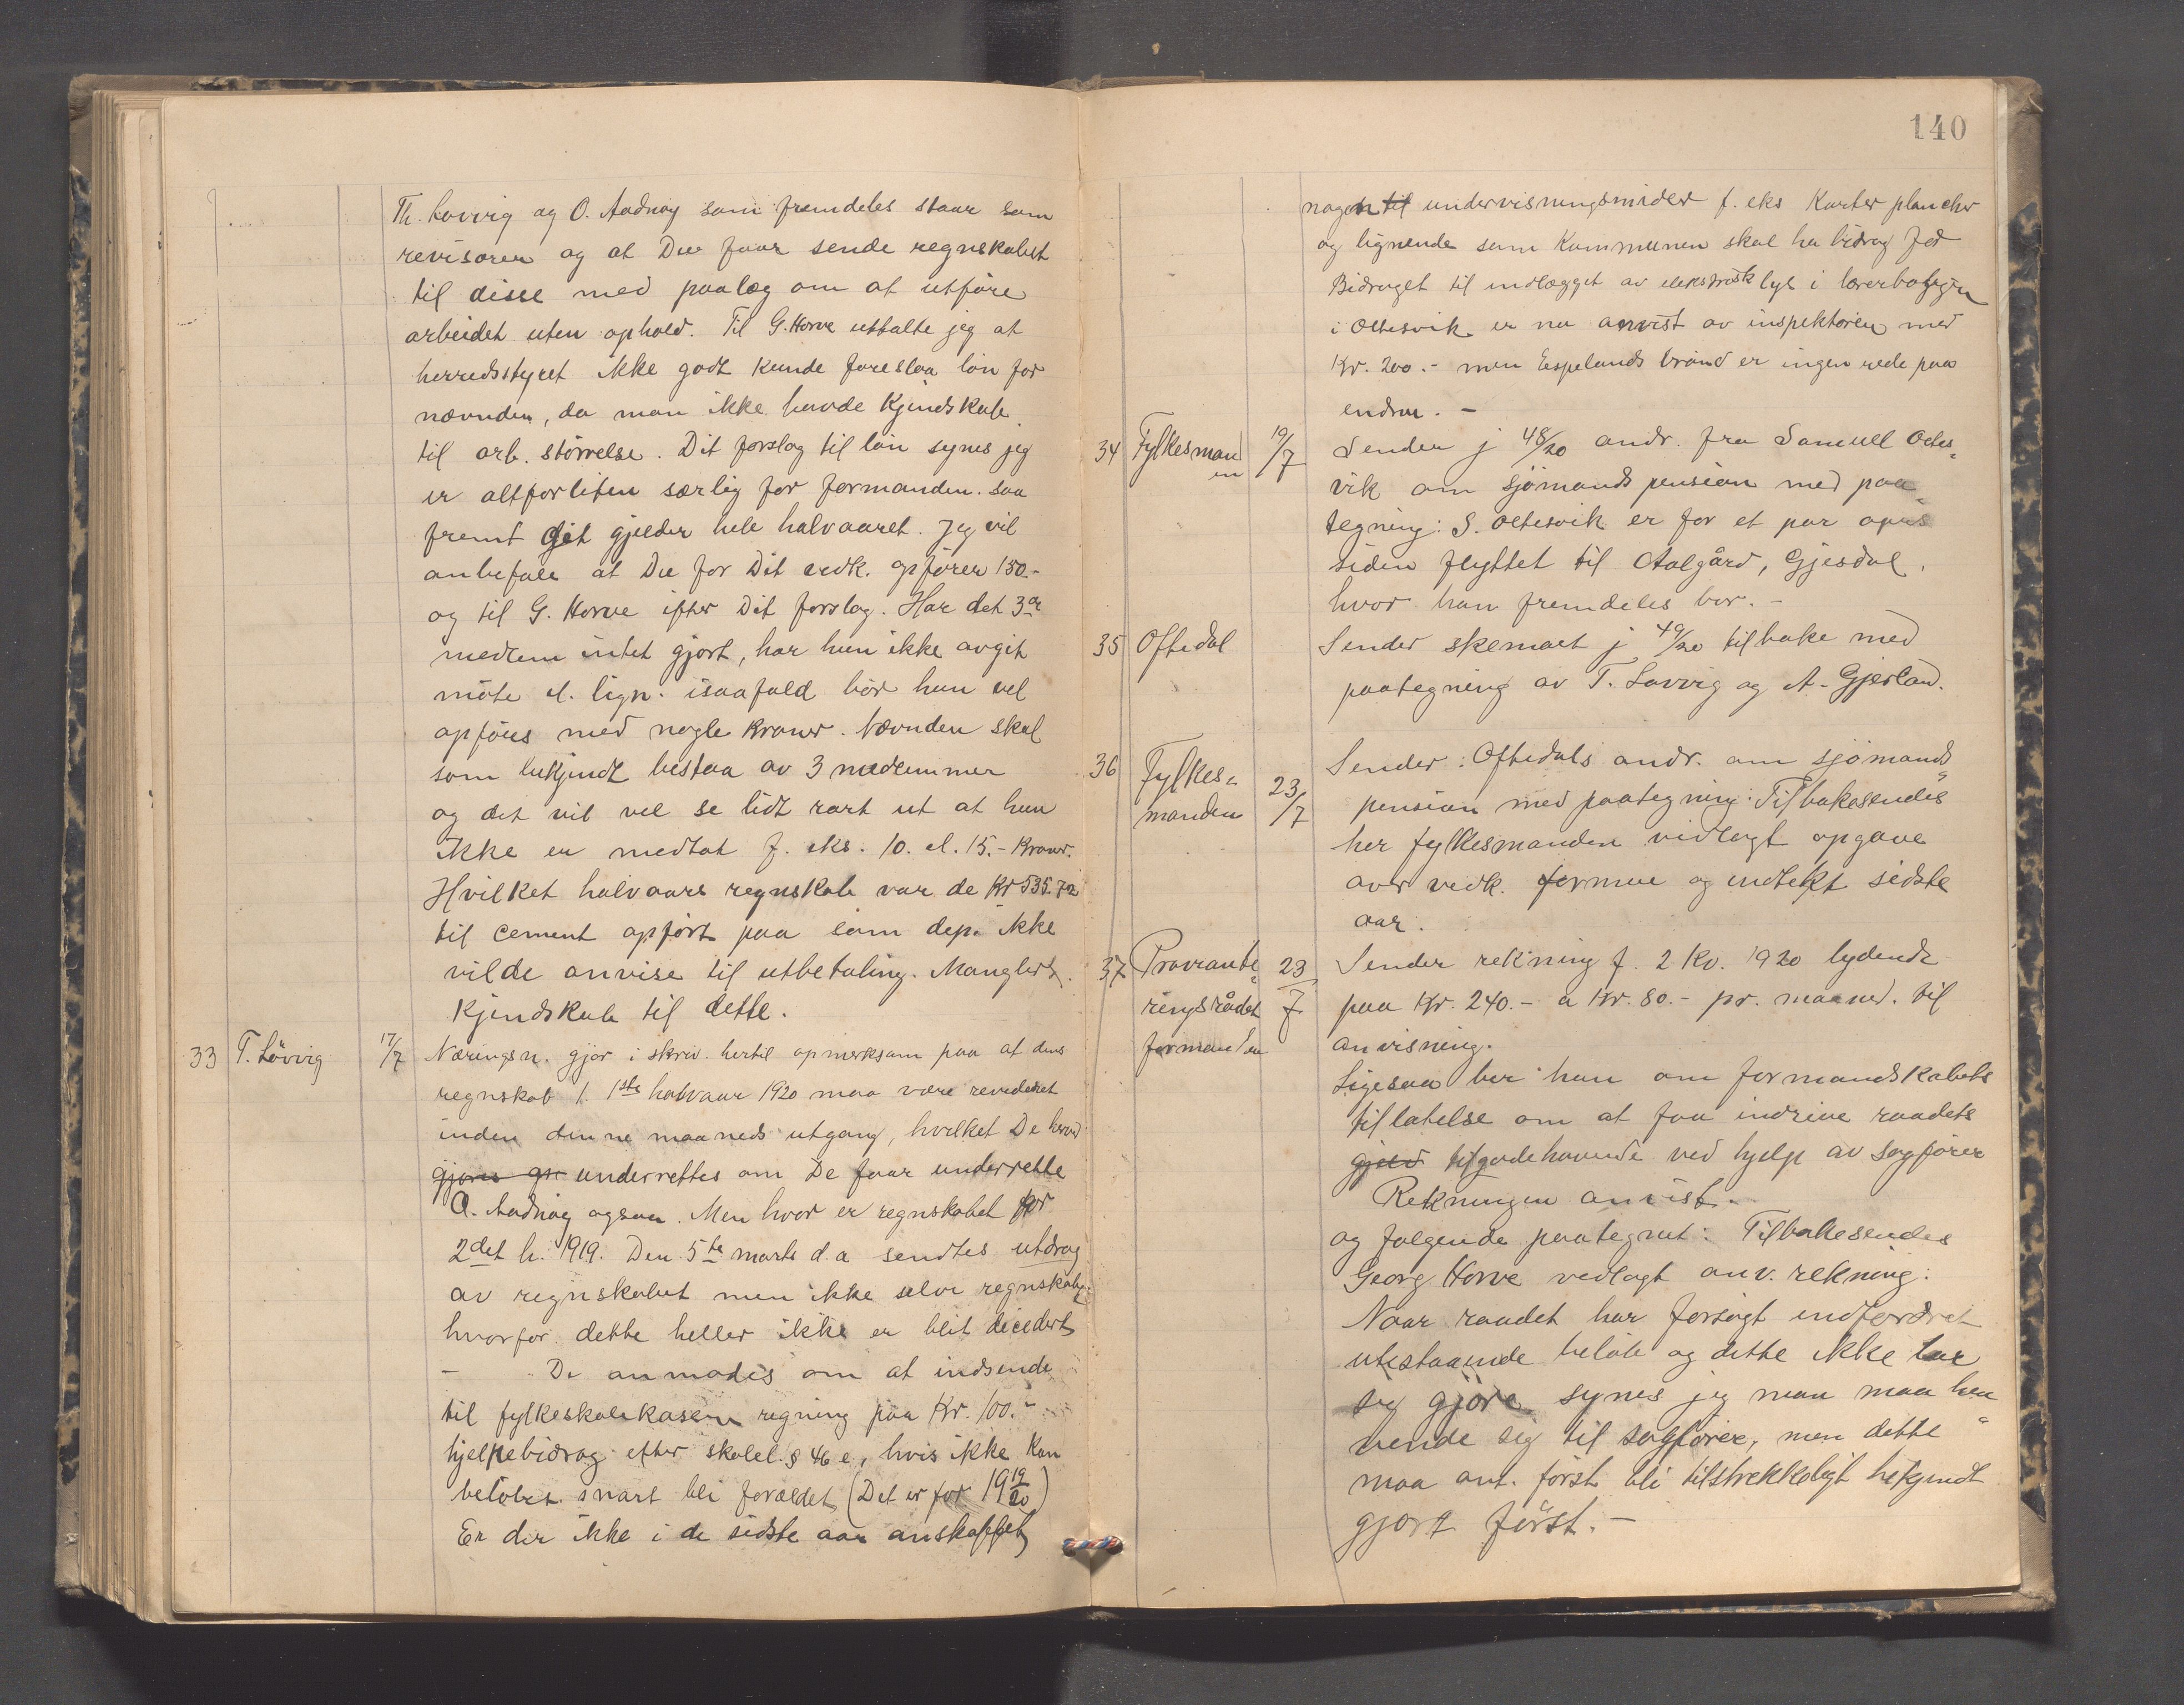 Th. Lövvig og O. Aadnöy som fremdeles staar som
revisorer og at Du faar sende regnskabet
til disse med paalæg om at utföre
arbeidet uten ophold. Til G. Horve uttalte jeg at
herredsstyret ikke godt kunde foreslaa lön for
nævnden, da man ikke havde Kjendskab
til arb. störrelse. Dit forslag til lön synes jeg
er altforliten særlig for formanden. saa
fremt det gjelder hele halvaaret. Jeg vil
anbefale at Du for Dit vedk. opförer 150.-
og til G. Horve efter Dit forslag. Har det 3de
medlem intet gjort, har hun ikke avgit
möte el. lign. isaafald bör hun vel
opföres med nogle Kroner. Nævnden skal
som bekjendt bestaa av 3 medlemmer
og det vil vel se lidt rart ut at hun
ikke er medtat f. eks. 10. el. 15.- Kroner.
Hvilket halvaars regnskab var de Kr 535.72
til cement opfört paa som dep. ikke
vilde anvise til utbetaling. Manglert
Kjendskab til dette.
33 T. Lövvig 17/7 Næringsn. gjör i skriv. hertil opmerksom paa at dens
regnskab f. 1ste halvaar 1920 maa være revideret
inden denne maaneds utgang, hvilket De herved
gjøres op- underrettes om De faar underrette
O. Aadnöy ogsaa. Men hvor er regnskabet for
2det h. 1919. Den 5te marts d.a sendtes utdrag
av regnskabet men ikke selve regnskabet
hvorfor dette heller ikke er blit decidert
- De anmodes om at indsende
til fylkesskolekassen regning paa Kr. 100.-
hjelpebidrag efter skolel. § 46 e, hvis ikke kan
belöbet snart bli forældet (Det er for 19 19/20)
Er der ikke i de sidste aar anskaffet
140
nogen til undervisningsmidler f. eks Karter plancher
og lignende som Kommunen skal ha bidrag for
Bidraget til indlægget av elektrisk lys i lærerboligen
i Oltesvik er nu anvist av inspektören med
Kr. 200.- men Espelands brand er ingen rede paa
endnu. -
34 Fylkesmanden 19/7 Sender j 48/20 andr. fra Samuel Oltes-
vik om sjömands pension med paa-
tegning: S. Oltesvik er for et par aars
siden flyttet til Aalgård, Gjesdal,
hvor han fremdeles bor. -
35 Oftedal Sender skemaet j 49/20 tilbake med
paategning av T. Lövvig og A. Gjesland.
36 Fylkes- manden 23/7 Sender Oftedals andr. om sjömands-
pension med paategning: Tilbakesendes
her fylkesmanden vedlagt opgave
over vedk. formue og indtekt sidste
aar.
37 Proviante- ringsrådets formanden 23/7 Sender rekning f. 2 Kv. 1920 lydende
paa Kr. 240.- a Kr. 80.- pr. maaned. til
anvisning.
Ligesaa ber han om formandskabets
tillatelse om at faa indrive raadets
gjeld tilgodehavende ved hjelp av sagförer
Rekningen anvist.
og fölgende paategnet: Tilbakesendes
Georg Horve vedlagt anv. rekning.
Naar raadet har forsögt indfordret
utestaaende belöb og dette ikke lar
sig gjöre synes jeg man maa hen-
vende sig til sagförer, men dette
maa ant. först bli tilstrekkeligt bekjendt
gjort först. -